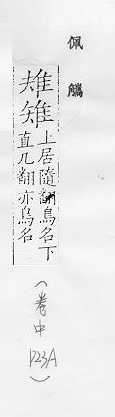 佩觿
雉
上居隨翻鳥名下
直几翻亦鳥名
(卷中 123A)